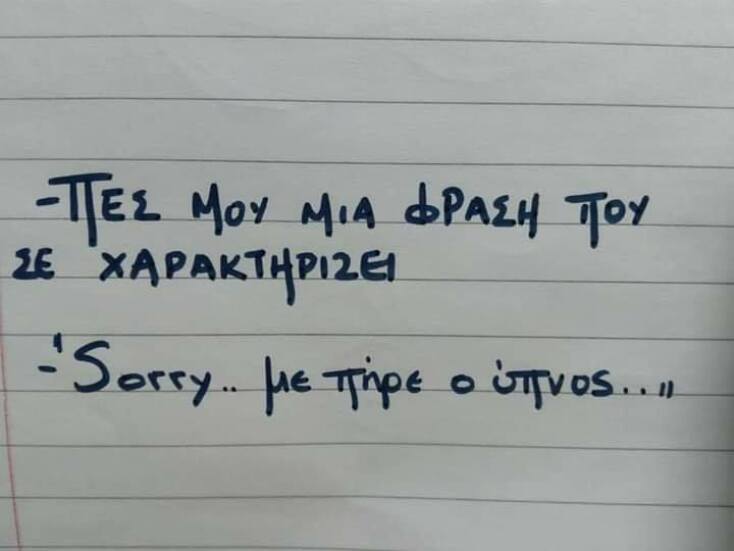 -ΠΕΣ ΜΟΥ ΜΙΑ ΦΡΑΣΗ ΠΟΥ
ΣΕ ΧΑΡΑΚΤΗΡΙΖΕΙ
-'Sorry.. με πήρε ο ύπνος..."